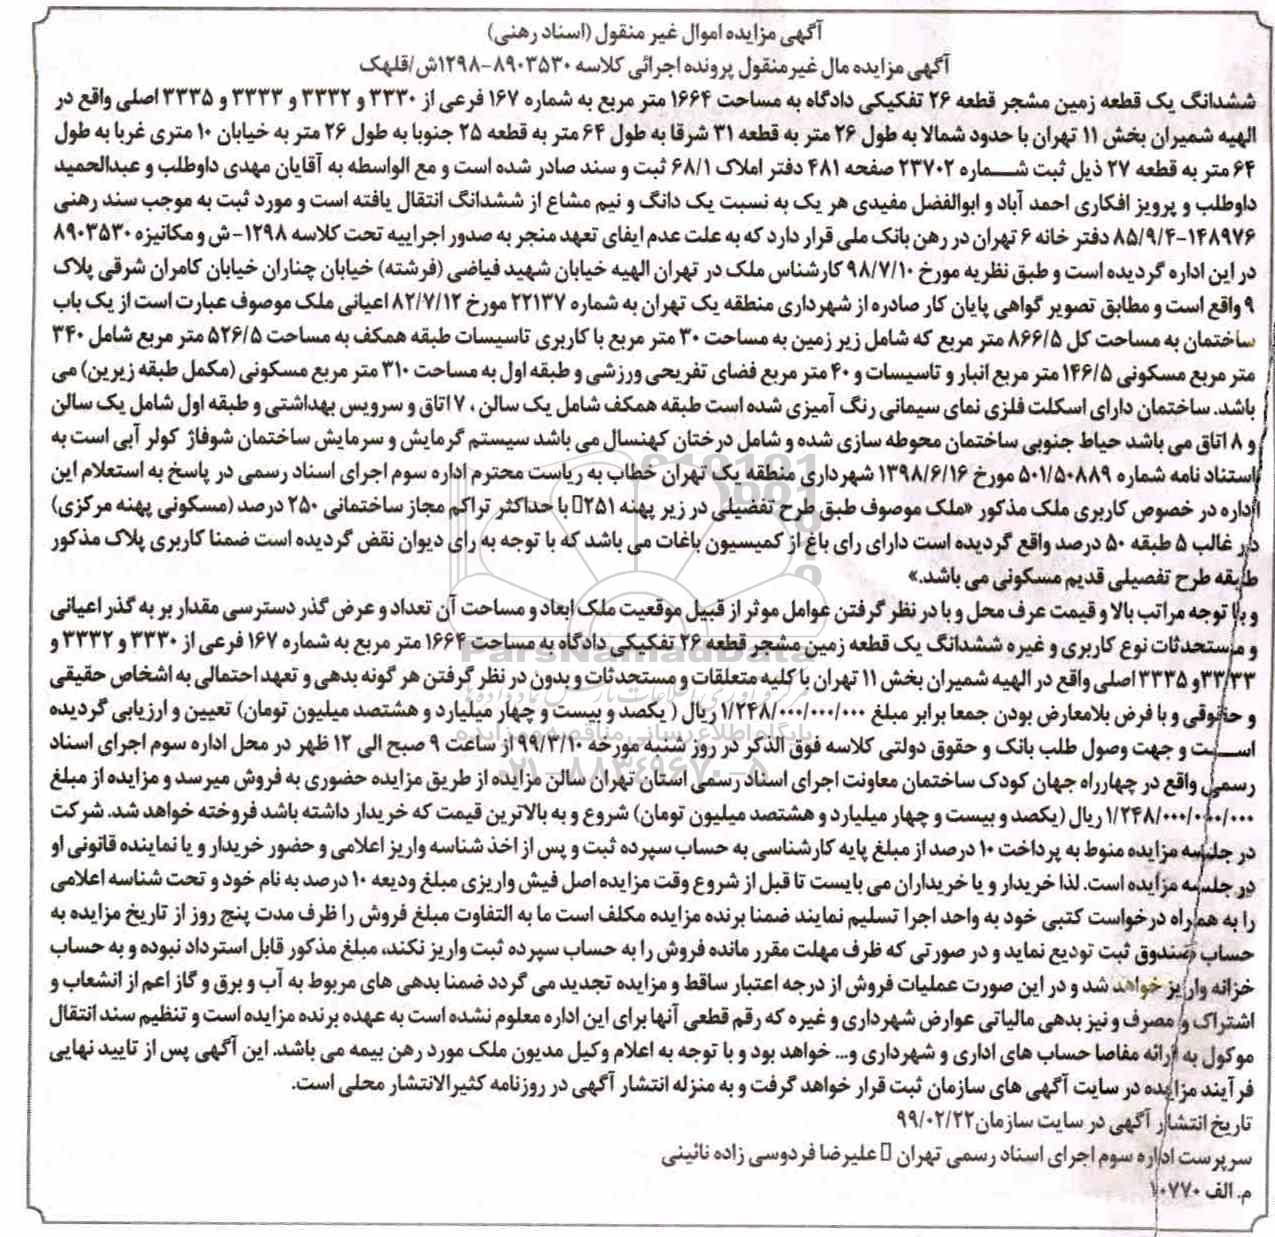 آگهی مزایده اموال غیر منقول (اسناد رهنی)
آگهی مزایده مال غیرمنقول پرونده اجرائی کلاسه ۸۹۰۳۵۳۰-۱۲۹۸ش/قلهک
ششدانگ یک قطعه زمین مشجر قطعه ۲۶ تفکیکی دادگاه به مساحت ۱۶۶۴ متر مربع به شماره ۱۶۷ فرعی از ۳۳۳۰ و ۳۳۳۲ و ۳۳۳۳ و ۳۳۳۵ اصلی واقع در
الهیه شمیران بخش ۱۱ تهران با حدود شمالا به طول ۲۶ متر به قطعه ۳۱ شرقا به طول ۶۴ متر به قطعه ۲۵ جنوبا به طول ۲۶ متر به خیابان ۱۰ متری غربا به طول
۶۴ متر به قطعه ۲۷ ذیل ثبت شماره ۲۳۷۰۲ صفحه ۴۸۱ دفتر املاک ۶۸/۱ ثبت و سند صادر شده است و مع الواسطه به آقایان مهدی داوطلب و عبدالحمید
داوطلب و پرویز افکاری احمد آباد و ابوالفضل مفیدی هر یک به نسبت یک دانگ و نیم مشاع از ششدانگ انتقال یافته است و مورد ثبت به موجب سند رهنی
۱۴۸۹۷۶-۸۵/۹/۴ دفتر خانه ۶ تهران در رهن بانک ملی قرار دارد که به علت عدم ایفای تعهد منجر به صدور اجراییه تحت کلاسه ۱۲۹۸-ش و مکانیزه ۸۹۰۳۵۳۰
در این اداره گردیده است و طبق نظریه مورخ ۹۸/۷/۱۰ کارشناس ملک در تهران الهیه خیابان شهید فیاضی (فرشته) خیابان چناران خیابان کامران شرقی پلاک
۹ واقع است و مطابق تصویر گواهی پایان کار صادره از شهرداری منطقه یک تهران به شماره ۲۲۱۳۷ مورخ ۸۲/۷/۱۲ اعیانی ملک موصوف عبارت است از یک باب
ساختمان به مساحت کل ۸۶۶/۵ متر مربع که شامل زیر زمین به مساحت ۳۰ متر مربع با کاربری تاسیسات طبقه همکف به مساحت ۵۲۶/۵ متر مربع شامل ۳۴۰
متر مربع مسکونی ۱۴۶/۵ متر مربع انبار و تاسیسات و ۴۰ متر مربع فضای تفریحی ورزشی و طبقه اول به مساحت ۳۱۰ متر مربع مسکونی (مکمل طبقه زیرین) می
باشد. ساختمان دارای اسکلت فلزی نمای سیمانی رنگ آمیزی شده است طبقه همکف شامل یک سالن ، ۷ اتاق و سرویس بهداشتی و طبقه اول شامل یک سالن
و ۸ اتاق می باشد حیاط جنوبی ساختمان محوطه سازی شده و شامل درختان کهنسال می باشد سیستم گرمایش و سرمایش ساختمان شوفاژ کولر آبی است به
استناد نامه شماره ۵۰۱/۵۰۸۸۹ مورخ ۱۳۹۸/۶/۱۶ شهرداری منطقه یک تهران خطاب به ریاست محترم اداره سوم اجرای اسناد رسمی در پاسخ به استعلام این
اداره در خصوص کاربری ملک مذکور «ملک موصوف طبق طرح تفضیلی در زیر پهنه ۲۵۱ با حداکثر تراکم مجاز ساختمانی ۲۵۰ درصد (مسکونی پهنه مرکزی)
در غالب ۵ طبقه ۵۰ درصد واقع گردیده است دارای رای باغ از کمیسیون باغات می باشد که با توجه به رای دیوان نقض گردیده است ضمنا کاربری پلاک مذکور
طبقه طرح تفصیلی قدیم مسکونی می باشد.»
و با توجه مراتب بالا و قیمت عرف محل و با در نظر گرفتن عوامل موثر از قبیل موقعیت ملک ابعاد و مساحت آن تعداد و عرض گذر دسترسی مقدار بر به گذر اعیانی
و مستحدثات نوع کاربری و غیره ششدانگ یک قطعه زمین مشجر قطعه ۲۶ تفکیکی دادگاه به مساحت ۱۶۶۴ متر مربع به شماره ۱۶۷ فرعی از ۳۳۳۰ و ۳۳۳۲ و
۳۳۳۳ و ۳۳۳۵ اصلی واقع در الهیه شمیران بخش ۱۱ تهران با کلیه متعلقات و مستحدثات و بدون در نظر گرفتن هر گونه بدهی و تعهد احتمالی به اشخاص حقیقی
و حقوقی و با فرض بلامعارض بودن جمعا برابر مبلغ ۱/۲۴۸/۰۰۰/۰۰۰/۰۰۰ ریال ( یکصد و بیست و چهار میلیارد و هشتصد میلیون تومان) تعیین و ارزیابی گردیده
است و جهت وصول طلب بانک و حقوق دولتی کلاسه فوق الذکر در روز شنبه مورخه ۹۹/۳/۱۰ از ساعت ۹ صبح الی ۱۲ ظهر در محل اداره سوم اجرای اسناد
رسمی واقع در چهارراه جهان کودک ساختمان معاونت اجرای اسناد رسمی استان تهران سالن مزایده از طریق مزایده حضوری به فروش میرسد و مزایده از مبلغ
۱/۲۴۸/۰۰۰/۰۰۰/۰۰۰ ریال (یکصد و بیست و چهار میلیارد و هشتصد میلیون تومان) شروع و به بالاترین قیمت که خریدار داشته باشد فروخته خواهد شد. شرکت
در جلسه مزایده منوط به پرداخت ۱۰ درصد از مبلغ پایه کارشناسی به حساب سپرده ثبت و پس از اخذ شناسه واریز اعلامی و حضور خریدار و یا نماینده قانونی او
در جلسه مزایده است. لذا خریدار و یا خریداران می بایست تا قبل از شروع وقت مزایده اصل فیش واریزی مبلغ ودیعه ۱۰ درصد به نام خود و تحت شناسه اعلامی
را به همراه درخواست کتبی خود به واحد اجرا تسلیم نمایند ضمنا برنده مزایده مکلف است ما به التفاوت مبلغ فروش را ظرف مدت پنج روز از تاریخ مزایده به
حساب صندوق ثبت تودیع نماید و در صورتی که ظرف مهلت مقرر مانده فروش را به حساب سپرده ثبت واریز نکند، مبلغ مذکور قابل استرداد نبوده و به حساب
خزانه واریز خواهد شد و در این صورت عملیات فروش از درجه اعتبار ساقط و مزایده تجدید می گردد ضمنا بدهی های مربوط به آب و برق و گاز اعم از انشعاب و
اشتراک و مصرف و نیز بدهی مالیاتی عوارض شهرداری و غیره که رقم قطعی آنها برای این اداره معلوم نشده است به عهده برنده مزایده است و تنظیم سند انتقال
موکول به ارائه مفاصا حساب های اداری و شهرداری و... خواهد بود و با توجه به اعلام وکیل مدیون ملک مورد رهن بیمه می باشد. این آگهی پس از تایید نهایی
فرآیند مزایده در سایت آگهی های سازمان ثبت قرار خواهد گرفت و به منزله انتشار آگهی در روزنامه کثیرالانتشار محلی است.
تاریخ انتشار آگهی در سایت سازمان ۹۹/۰۲/۲۲
سرپرست اداره سوم اجرای اسناد رسمی تهران علیرضا فردوسی زاده نائینی
م. الف ۱۰۷۷۰
ParsNamadData
پایگاه اطلاع رسانی مناقصه و مزایده
۰۲۱-۸۸۳۴۹۶۷۰-۵